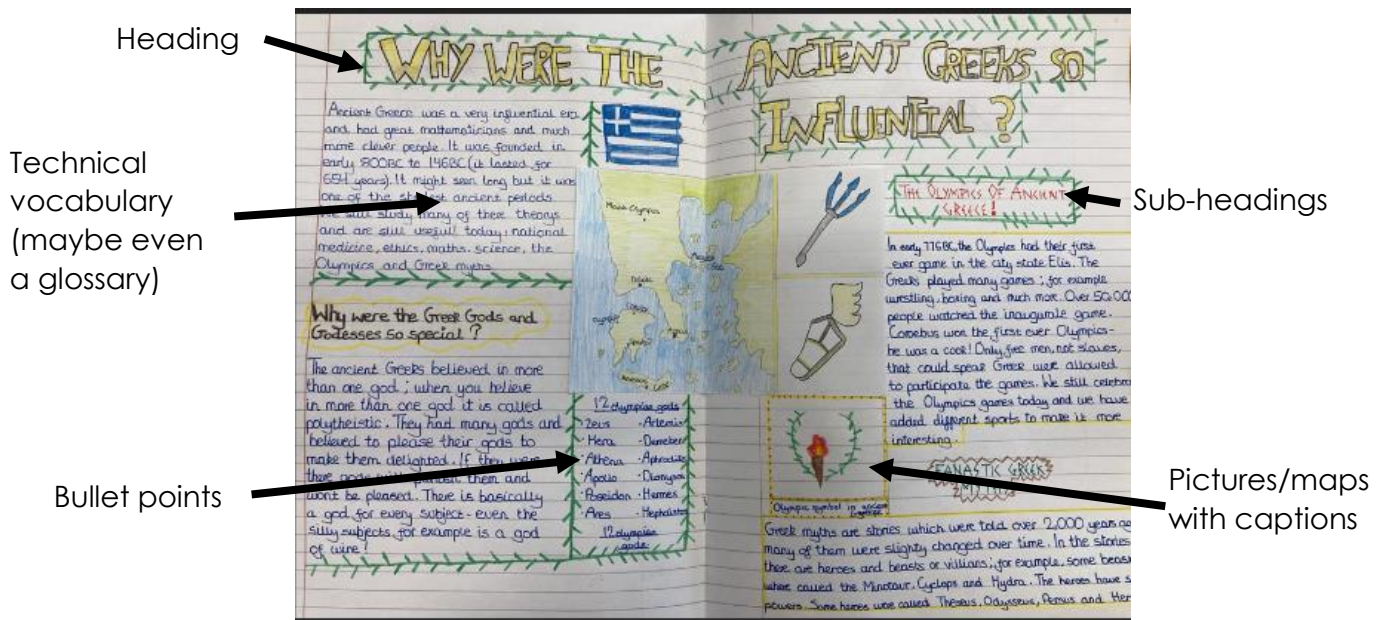 Heading
Technical
vocabulary
(maybe even
a glossary)
Bullet points
Sub-headings
Pictures/maps
with captions
WHY WERE THE ANCIENT GREEKS SO
INFLUENTIAL ?
Ancient Greece was a very influential era
and had great mathematicians and much
more clever people. It was founded in
early 800BC to 146BC (it lasted for
654 years). It might seem long but it was
one of the ancient periods.
We still study many of there theorys
and are still useful today; national
medicine, ethics, maths, science, the
Olympics and Greek myths
Why were the Greek Gods and
Godesses so special ?
The ancient Greeks believed in more
than one god ; when you believe
in more than one god it is called
polytheistic. They had many gods and
believed to please their gods to
make them delighted. If they were
there gods them and
wont be pleased. There is basically
a god for every subject - even the
silly subjects, for example is a god
of wine!
Mount Olympus
12 olympian gods
Zeus · Artemis
· Hera · Demeter
· Athena · Aphrodite
· Apollo · Dionysus
· Poseidon · Hermes
· Ares · Hephaistos
12 olympian
gods
THE OLYMPICS OF ANCIENT
GREECE!
In early 776BC, the Olympics had their first
ever game in the city state Elis. The
Greeks played many games ; for example
wrestling, boxing and much more. Over 50,000
people watched the inaugurale game.
Coroebus won the first ever Olympics -
he was a cook! Only free men, not slaves,
that could speak Greek were allowed
to participate the games. We still celebra
the Olympics games today and we have
added different sports to make it more
interesting.
Olympic symbol in ancient
FANASTIC GREEK
Greek myths are stories which were told over 2,000 years
many of them were slighty changed over time. In the stories
there are heroes and beasts or villians; for example, some beas
where called the Minotaur, Cyclops and Hydra. The heroes have s
powers. Some heroes were called Theseus, Odysseus, Persus and Her